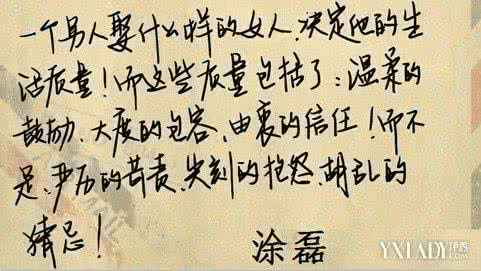 一个男人娶什么样的女人,决定他的生
活质量!而这些质量包括了:温柔的
鼓励、大度的包容、由衷的信任!而不
是,严厉的苛责、尖刻的抱怨、胡乱的
猜忌!
涂磊
YXLADY伊秀
.com